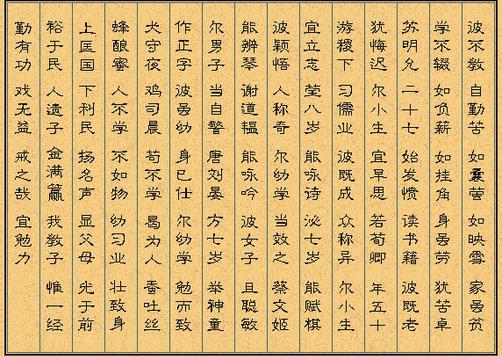 彼不教 自勤苦 如囊萤 如映雪 家虽贫
学不辍 如负薪 如挂角 身虽劳 犹苦卓
苏明允 二十七 始发愤 读书籍 彼既老
犹悔迟 尔小生 宜早思 若荀卿 年五十
游稷下 习儒业 彼既成 众称异 尔小生
宜立志 莹八岁 能咏诗 泌七岁 能赋棋
彼颖悟 人称奇 尔幼学 当效之 蔡文姬
能辨琴 谢道韫 能咏吟 彼女子 且聪敏
尔男子 当自警 唐刘晏 方七岁 举神童
作正字 彼虽幼 身已仕 尔幼学 勉而致
犬守夜 鸡司晨 苟不学 曷为人 蚕吐丝
蜂酿蜜 人不学 不如物 幼习业 壮致身
上匡国 下利民 扬名声 显父母 光于前
裕于民 人遗子 金满籯 我教子 惟一经
勤有功 戏无益 戒之哉 宜勉力